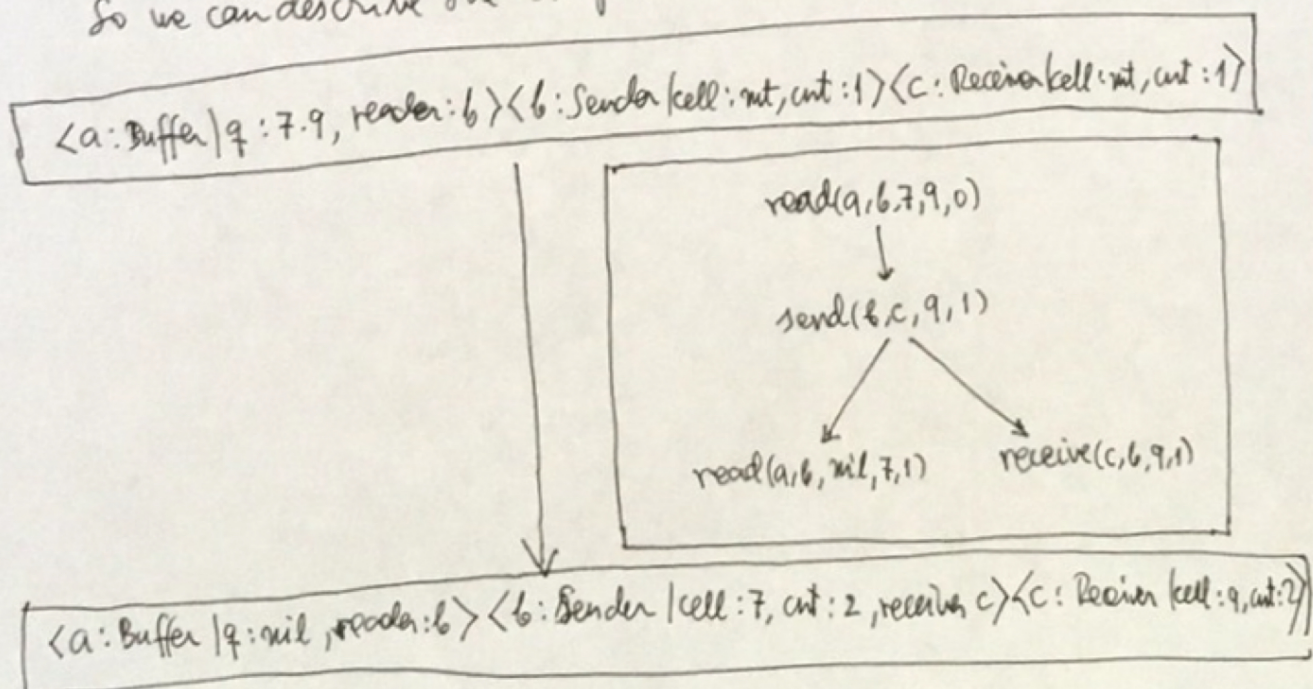 So we can describe the
<a : Buffer | q : 7.9, reader : b > < b : Sender | cell : mt, cnt : 1 > < c : Receiver | cell : mt, cnt : 1 >
read(a,b,7,9,0)
send(b,c,9,1)
read(a,b,nil,7,1) receive(c,b,9,1)
<a : Buffer | q : nil, reader : b > < b : Sender | cell : 7, cnt : 2, receiver c > < c : Receiver | cell : 9, cnt : 2 >